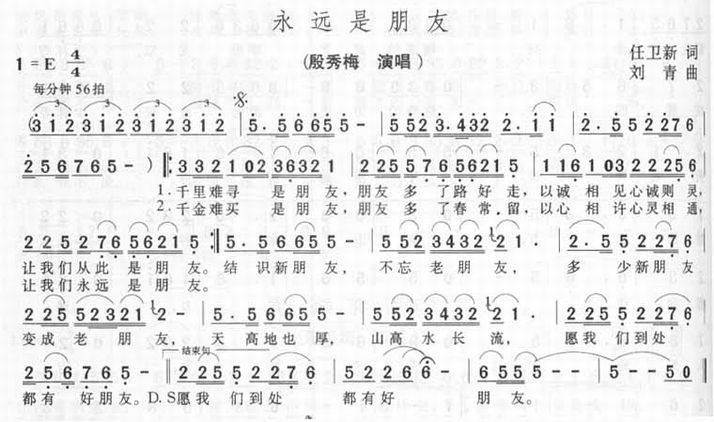 永远是朋友
1=E 4/4
(殷秀梅 演唱)
任卫新 词
刘青 曲
每分钟56拍
(3 1 2 3 1 2 3 1 2 3 1 2 | 5. 5 6 6 5 5 - | 5 5 2 3. 4 3 2 2. 1 1 | 2. 5 5 2 2 7 6 |
2 5 6 7 6 5 - ) ‖: 3 3 2 1 0 2 3 6 3 2 1 | 2 2 5 5 7 6 5 6 2 1 5 | 1 1 6 1 0 3 2 2 2 5 6 |
1.千里难寻 是朋友,朋友多了路好走,以诚相见心诚则灵,
2.千金难买 是朋友,朋友多了春常留,以心相许心灵相通,
2 2 5 2 7 6 5 6 2 1 5 :‖ 5. 5 6 6 5 5 - | 5 5 2 3 4 3 2 2 1. | 2. 5 5 2 2 7 6 |
让我们从此是朋友。结识新朋友,不忘老朋友,多少新朋友
让我们永远是朋友。
2 2 5 5 2 3 2 1 2 - | 5. 5 6 6 5 5 - | 5 5 2 3 4 3 2 2 1. | 2 2 5 5 2 2 7 6 |
变成老朋友,天高地也厚,山高水长流,愿我们到处
结束句
2 5 6 7 6 5 - ‖ 2 2 5 5 2 2 7 6 | 5 2 2 6 6 - | 6 5 5 5 5 - | 5 - - 5 0 ‖
都有好朋友。D.S愿我们到处都有好朋友。